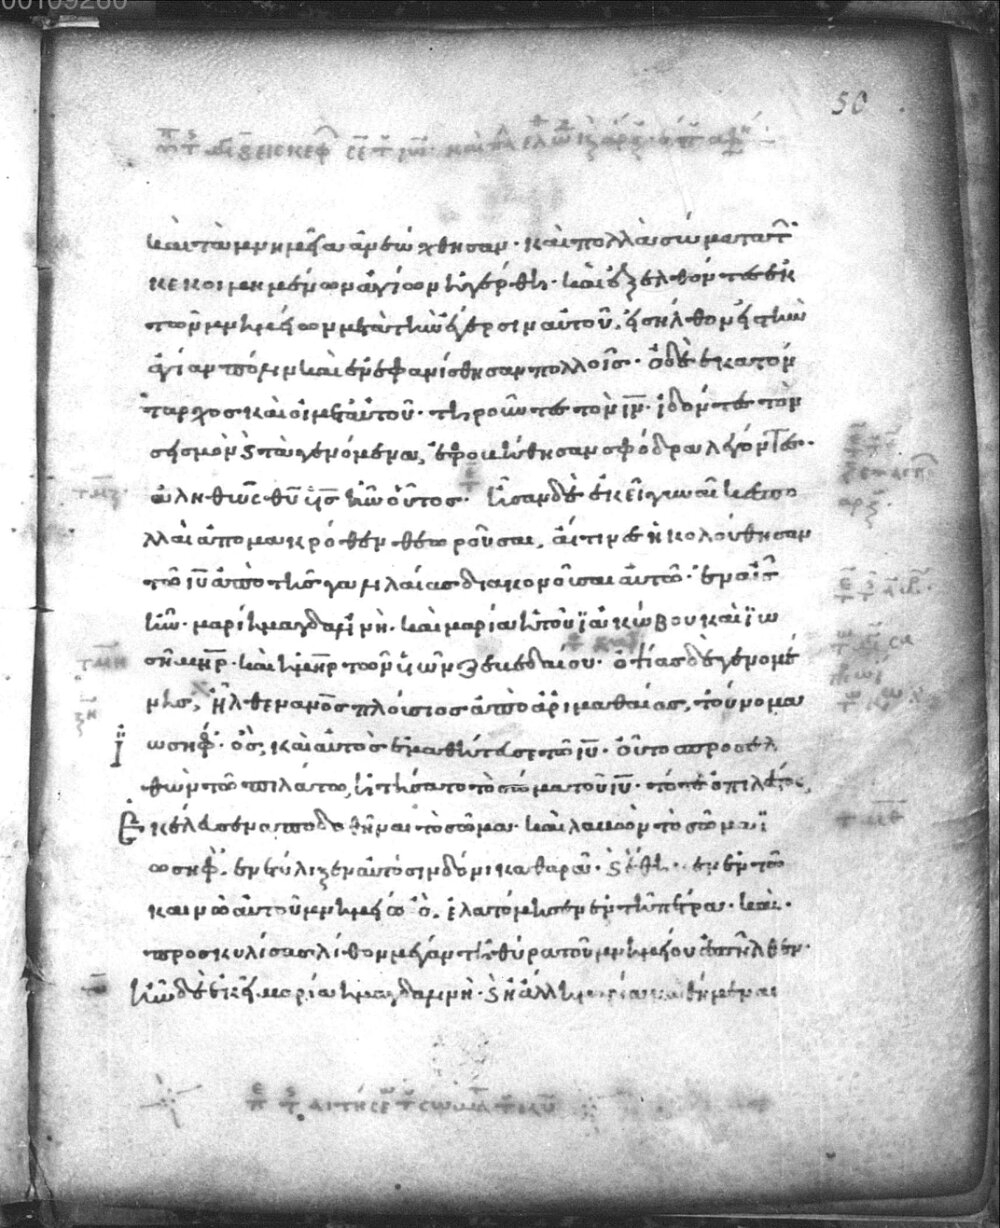 50
καὶ τὰ μνημεῖα ἀνεώχθησαν· καὶ πολλὰ σώματα τ
κεκοιμημένων ἁγίων ἠγέρθη· καὶ ἐξελθόντες ἐκ
τῶν μνημείων μετὰ τὴν ἔγερσιν αὐτοῦ, εἰσῆλθον εἰς τὴν
ἁγίαν πόλιν καὶ ἐνεφανίσθησαν πολλοῖς· ὁ δὲ ἑκατόν
ταρχος καὶ οἱ μετ αὐτοῦ· τηροῦντες τὸν ἰν· ἰδόντες τὸν
σεισμὸν ϗ τὰ γενόμενα, ἐφοβήθησαν σφόδρα λέγοντες·
ἀληθῶς θυ υς ἦν οὗτος· ἦσαν δὲ ἐκεῖ γυναῖκες πο
λλαὶ ἀπὸ μακρόθεν θεωροῦσαι, αἵτινες ἠκολούθησαν
τῶ ιυ ἀπὸ τῆς γαλιλαίας διακονοῦσαι αὐτῶ· ἐν αἷς
ἦν· μαρία ἡ μαγδαλινὴ· καὶ μαρία ἡ τοῦ ἰακώβου καὶ ἰω
σῆ μηρ· καὶ ἡ μηρ τῶν υἱῶν ζεβεδαίου· ὀψίας δὲ γενομέ
νης, ἦλθεν ανος πλούσιος ἀπὸ ἀριμαθαίας, τοὔνομα
ἰωσηφ· ὃς, καὶ αὐτὸς ἐμαθήτευσε τῶ ιυ· οὗτος προσελ
θὼν τῶ πιλάτω, ἠτήσατο τὸ σῶμα τοῦ ιυ· τότε ὁ πιλάτος,
ἐκέλευσεν ἀποδοθῆναι τὸ σῶμα· καὶ λαβὼν τὸ σῶμα ἰ
ωσηφ· ἐνετύλιξεν αὐτὸ σινδόνι καθαρᾶ· ϗ ἔθη·· εν ἐν τῶ
καινῶ αὐτοῦ μνημείω ὃ, ἐλατόμησεν ἐν τῆ πέτρα· καὶ·
προσκυλίσας λίθον μέγαν τῆ θύρα τοῦ μνημείου ἀπῆλθεν·
ἦν δὲ ἐκεῖ μαρία ἡ μαγδαλινὴ· ϗ ἡ ἄλλη μαρία καθήμεναι